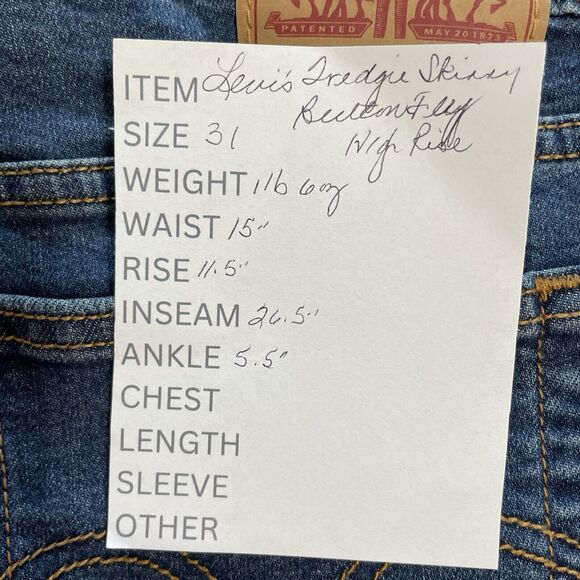 PATENTED MAY 20 1873
ITEM Levi's Wedgie Skinny
Button Fly
SIZE 31 High Rise
WEIGHT 1lb 6oz
WAIST 15"
RISE 11.5"
INSEAM 26.5"
ANKLE 5.5"
CHEST
LENGTH
SLEEVE
OTHER